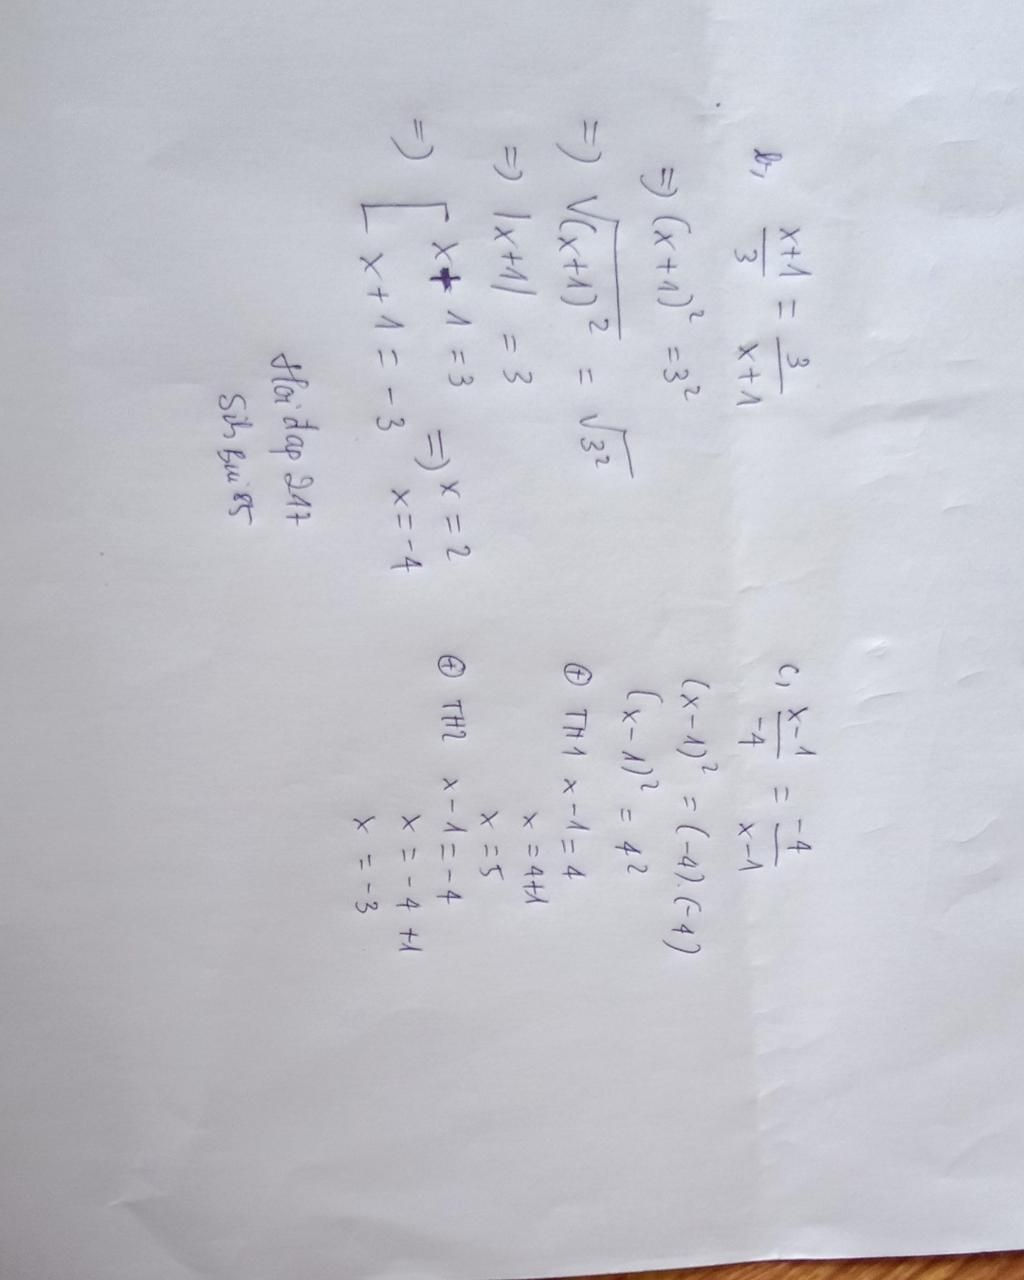 b, x+1/3 = 3/x+1
=) (x+1)² = 3²
=) √(x+1)² = √3²
=) |x+1| = 3
=) [ x+1 = 3 =) x = 2
x+1 = -3 x = -4
Hoidap 247
c, x-1/-4 = -4/x-1
(x-1)² = (-4).(-4)
(x-1)² = 4²
⊕ TH1 x-1 = 4
x = 4+1
x = 5
⊕ TH2 x-1 = -4
x = -4 +1
x = -3